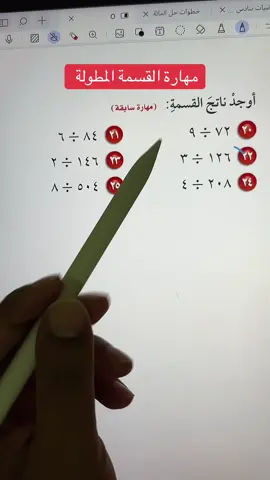 خطوات حل المسألة
مهارة القسمة المطولة
أوجد ناتجَ القسمةِ: (مهارة سابقة)
٢٠ ٧٢ ÷ ٩ ٢١ ٨٤ ÷ ٦
٢٢ ١٢٦ ÷ ٣ ٢٣ ١٤٦ ÷ ٢
٢٤ ٢٠٨ ÷ ٤ ٢٥ ٥٠٤ ÷ ٨